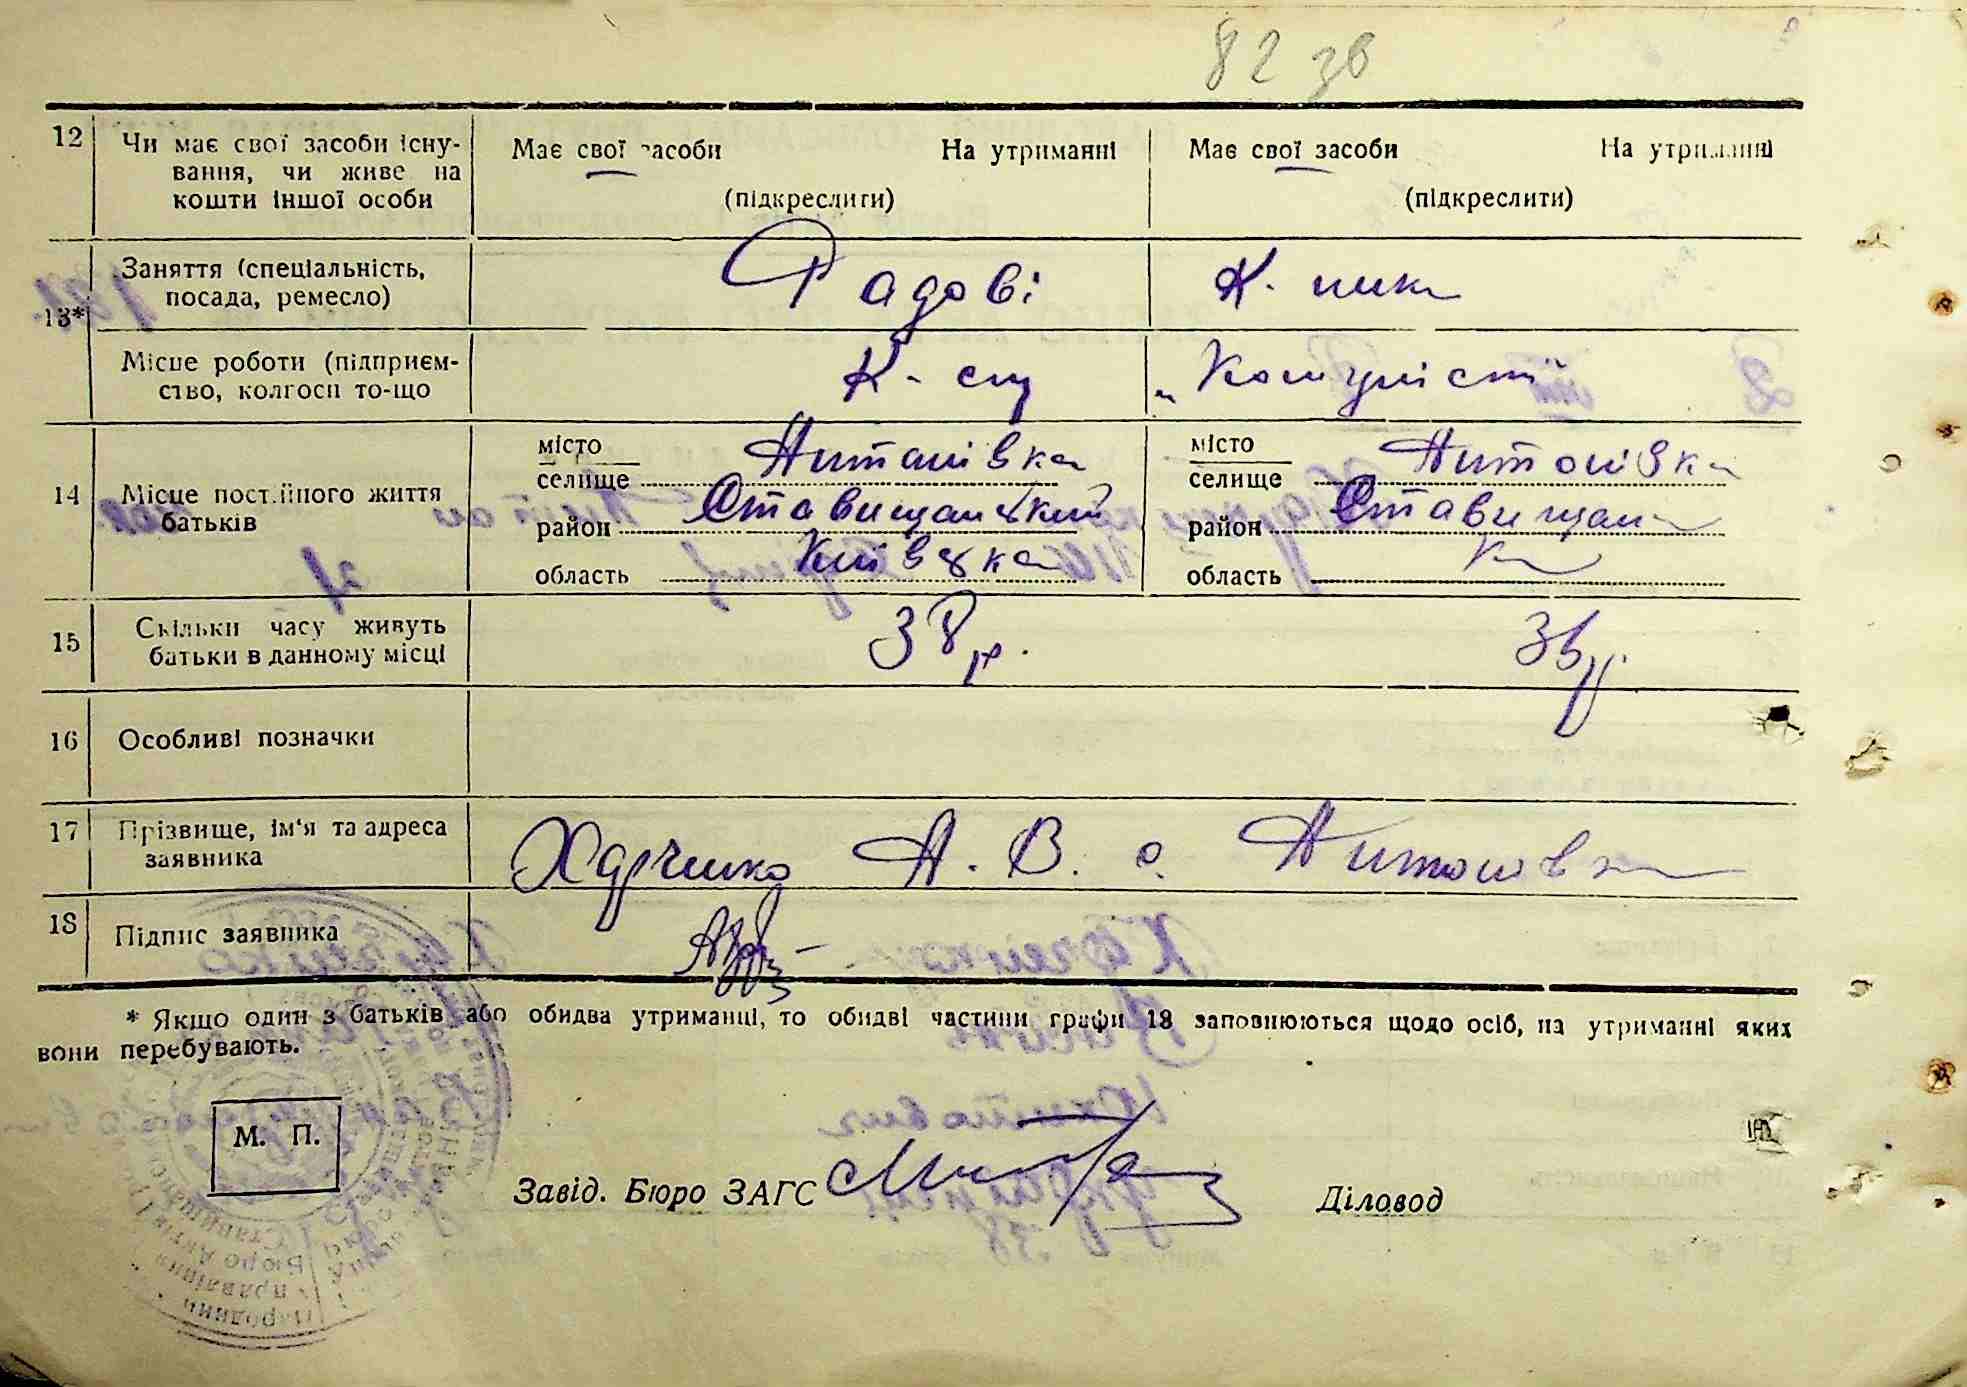 82 зв
12 Чи має свої засоби існу- Має свої засоби На утриманні Має свої засоби На утриманні
вання, чи живе на
кошти іншої особи (підкреслити) (підкреслити)
13* Заняття (спеціальність, Радові К-ник
посада, ремесло)
Місце роботи (підприєм- К-сп „Комуніст"
ство, колгосп то-що
14 Місце постійного життя
батьків
місто Антонівка місто Антонівка
селище селище
район Ставищанський район Ставищан
область Київська область К
15 Скільки часу живуть 38 р. 36 р.
батьки в данному місці
16 Особливі позначки
17 Прізвище, ім'я та адреса Харченко А. В. с. Антонівка
заявника
18 Підпис заявника
* Якщо один з батьків або обидва утриманці, то обидві частини графи 13 заповнюються щодо осіб, на утриманні яких
вони перебувають.
М. П.
Завід. Бюро ЗАГС Діловод